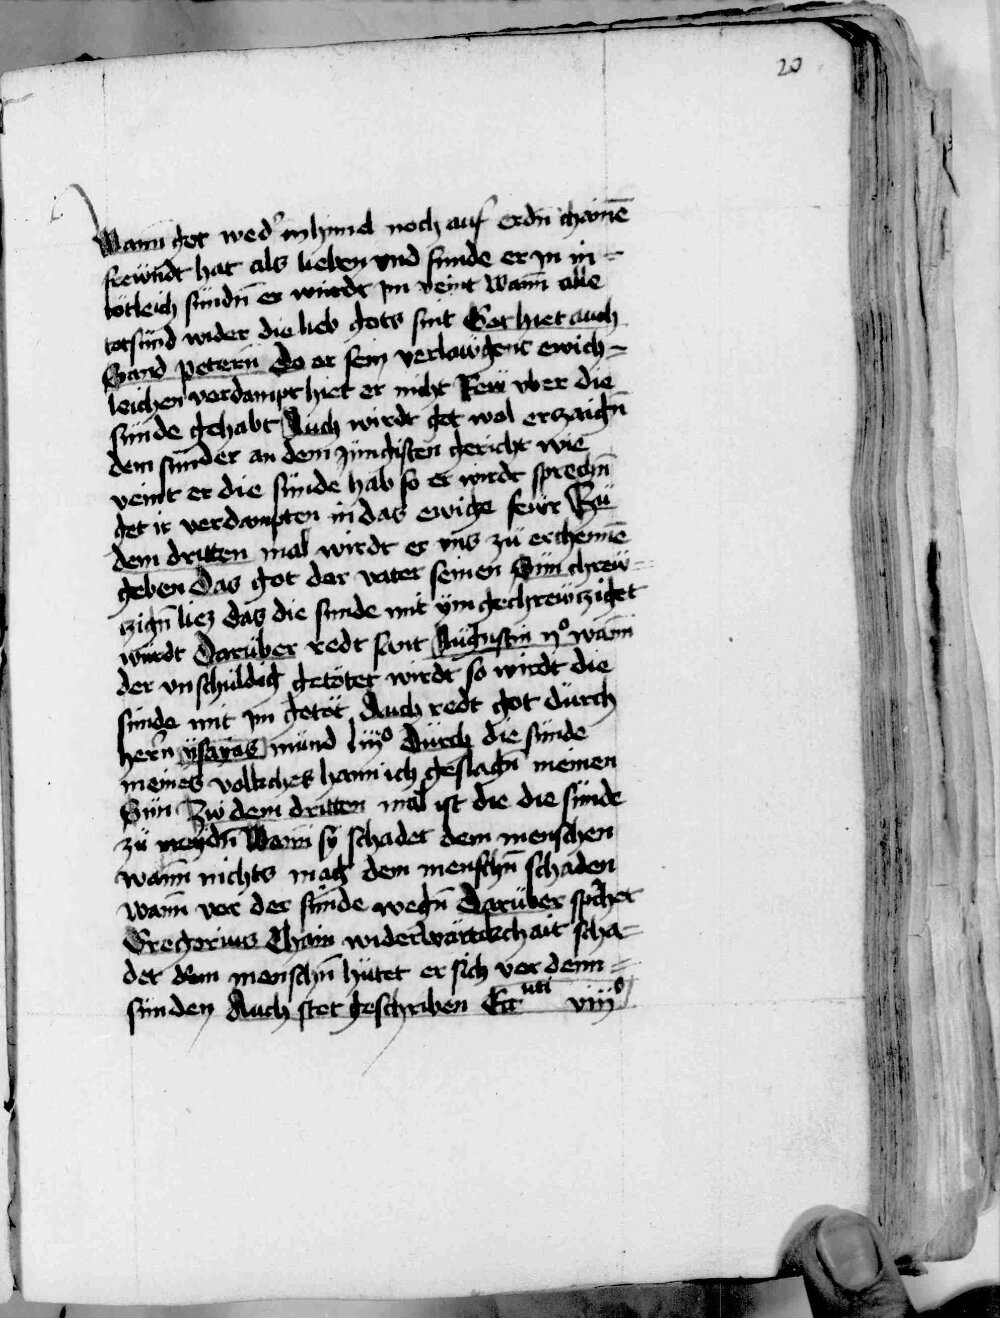 20
Wann got wed' in himel noch auf erdn̄ chainē
freẅndt hat als lieben vnd sunde er in in =
tötleich sündn̄ er wurdt im veint Wann alle
totsünd wider die lieb gots sint Got hiet auch
Sand peterñ Do er sein verlawgent ewich =
leichen verdampt hiet er nicht Rew vber die
sünde gehabt Auch wirdt got wol erzaign̄
dem sünder an dem jüngisten gericht wie
veint er die sünde hab so er wirdt sprechn̄
get ir verdampten in das ewige fewr Zü
dem dritten mal wirdt er vns zü erchennē
geben Das got der vater seinen Sün chrew =
czign̄ liez das die sunde mit ym gechrewcziget
würdt Darüber redt sant Augustin ijº wann
der vnschuldig getötet wirdt so wirdt die
sünde mit im getöt Auch redt got durch
hern̄ ysayas mund liijº Durch die sünde
meines volkches hann ich geslagn̄ meinen
Sün Zw dem dritten mal ist die die sünde
zü meydn̄ Wann sy schadet dem menschen
wann nichts mag dem menschn̄ schaden
wann vor der sünde wegn̄ Darüber sp'chet
Gregorius Chain widerwärtikchait scha =
det dem menschn̄ hütet er sich vor denn =
sünden Auch stet geschriben viijº